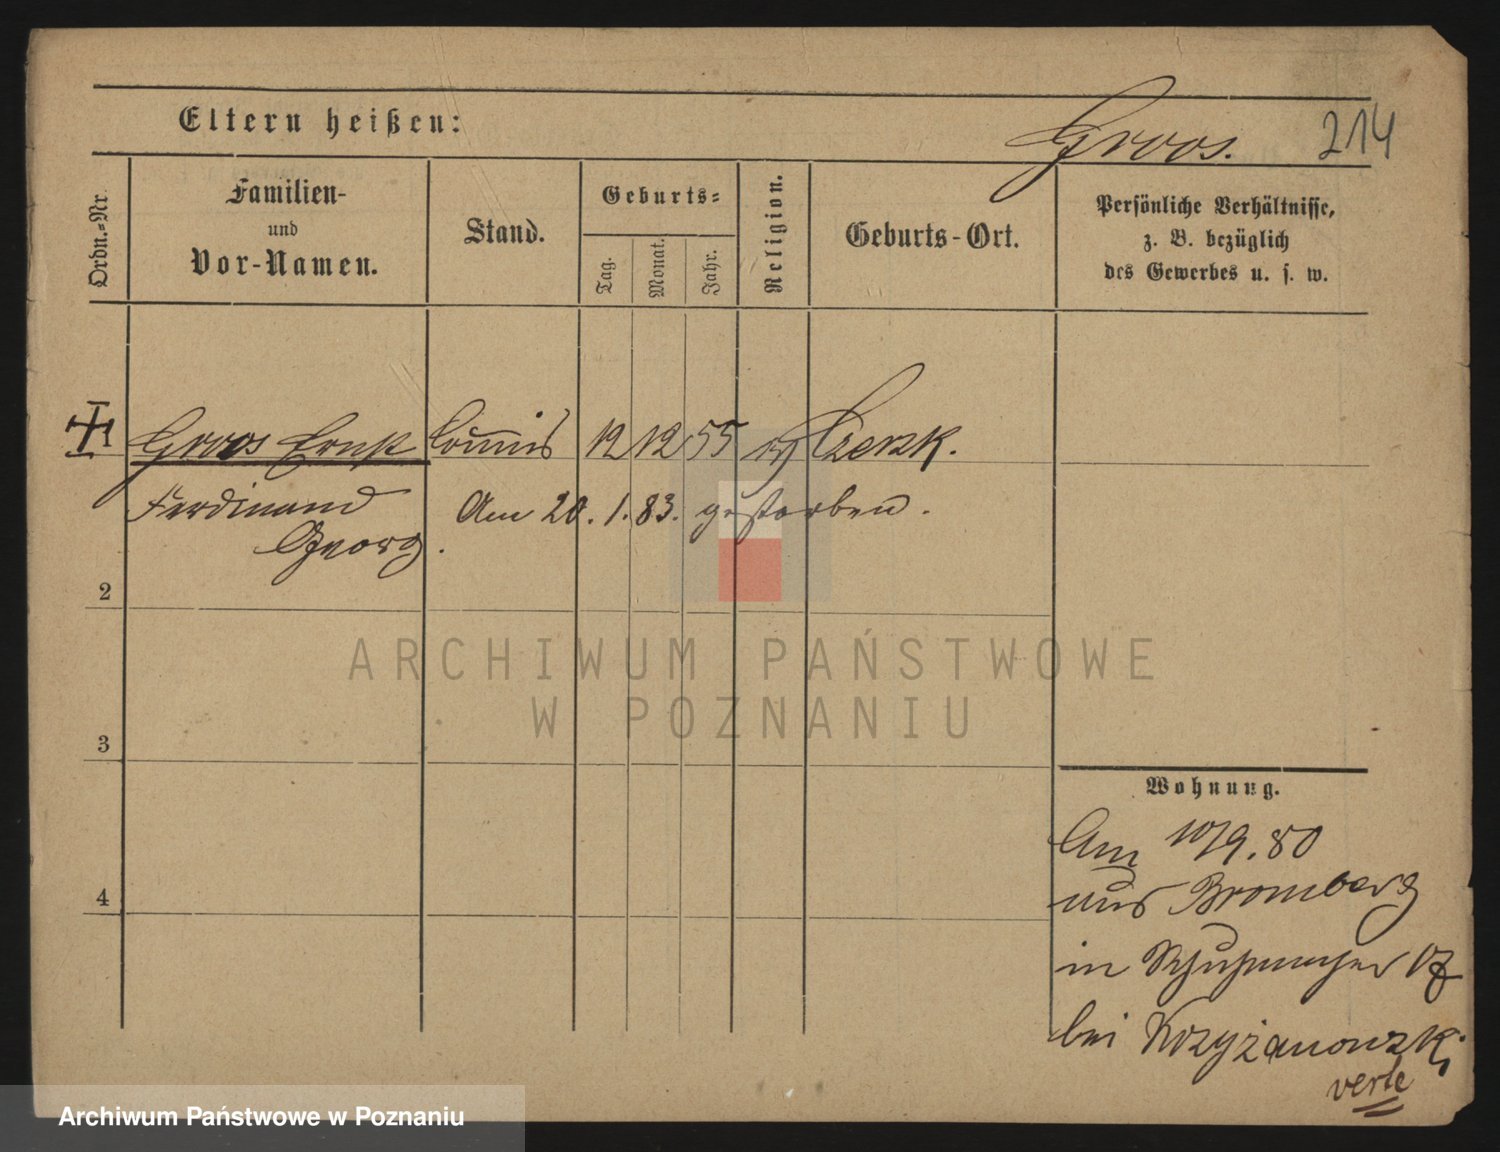 Eltern heißen:
Groos.
214
Ordn.-Nr.
Familien-
und
Vor-Namen.
Stand.
Geburts-
Tag.
Monat.
Jahr.
Religion.
Geburts-Ort.
Persönliche Verhältnisse,
z. B. bezüglich
des Gewerbes u. s. w.
Groos Ernst Commis 12 12 55 Czersk.
Ferdinand Am 20. 1. 83. gestorben.
Georg.
2
3
4
Wohnung.
Am 10/9. 80
aus Bromberg
in Schuhmacher 17
bei
ARCHIWUM PAŃSTWOWE
W POZNANIU
Archiwum Państwowe w Poznaniu